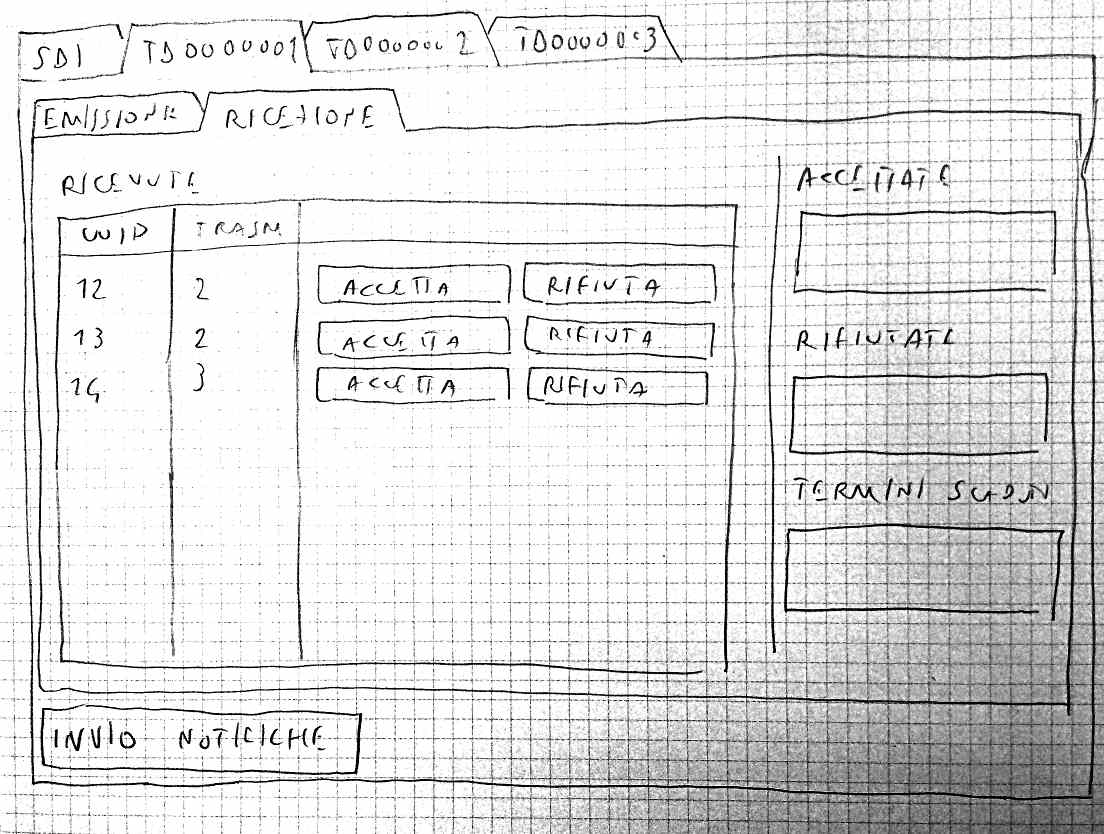 SDI TD0000001 TD0000002 TD0000003
EMISSIONE RICEZIONE
RICEVUTE
UUID TRASM
12 2 ACCETTA RIFIUTA
13 2 ACCETTA RIFIUTA
14 3 ACCETTA RIFIUTA
ACCETTATE
RIFIUTATE
TERMINI SCADUTI
INVIO NOTIFICHE